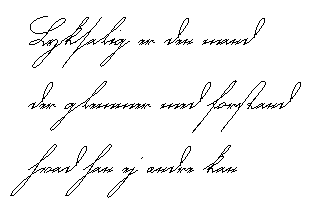 Lyksalig er den mand
der glemmer med forstand
hvad han ej andre kan